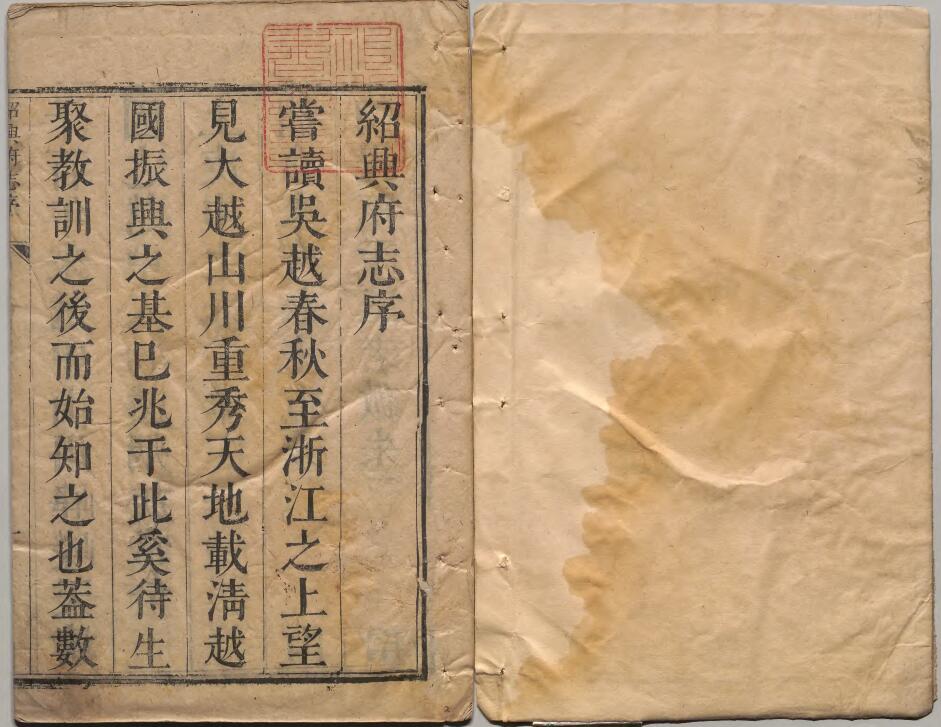 紹興府志序
嘗讀吳越春秋至浙江之上望
見大越山川重秀天地載淸越
國振興之基已兆于此奚待生
聚教訓之後而始知之也葢數
紹興府志序